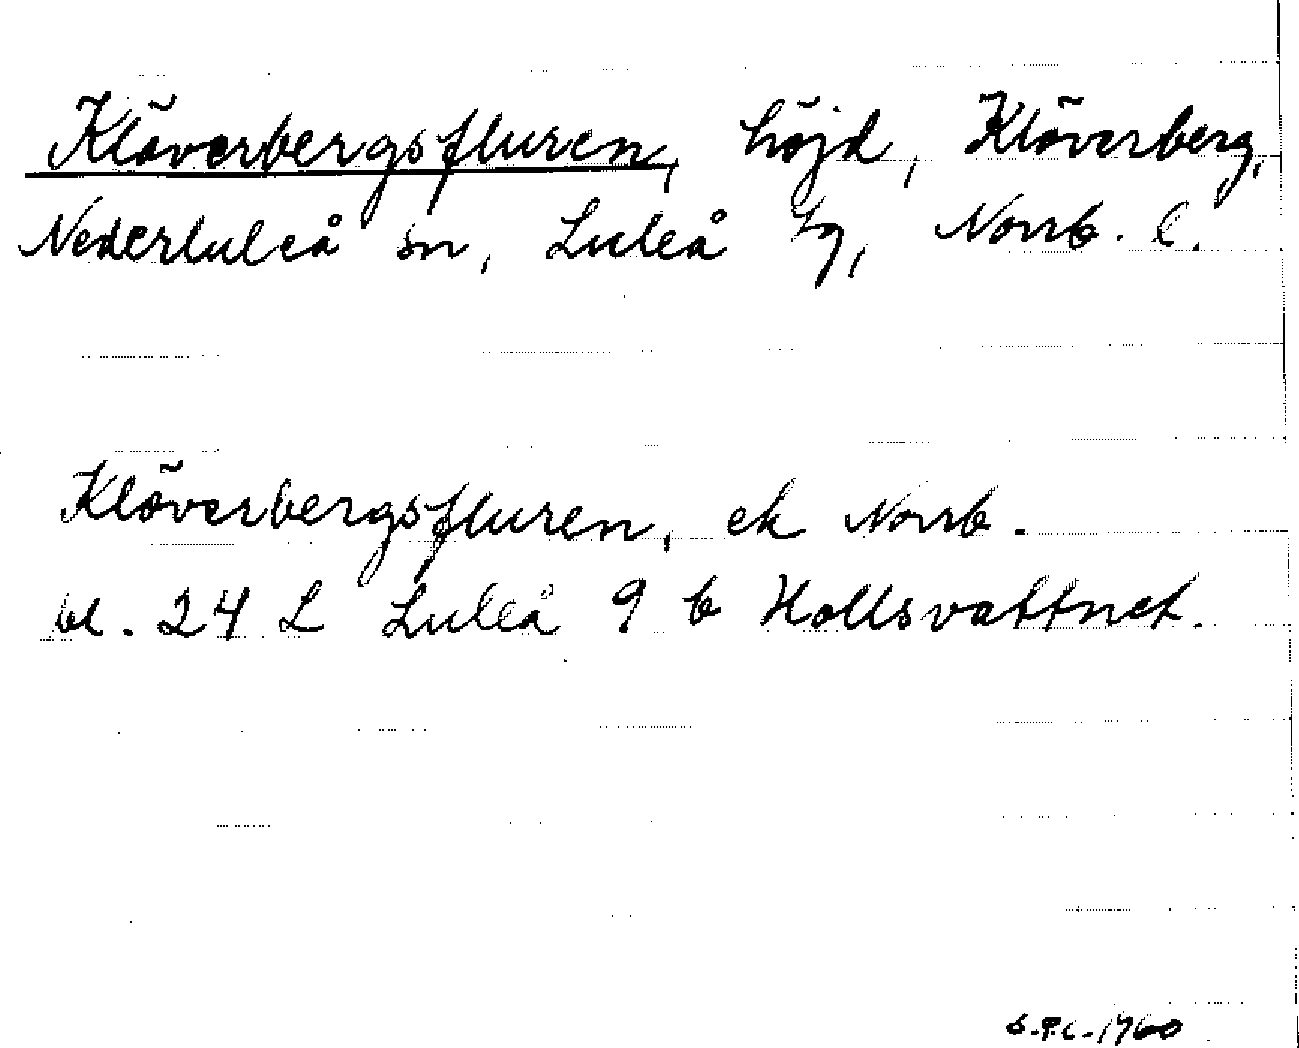 Klöverbergsfluren, höjd, Klöverberg,
Nederluleå sn, Luleå tg, Norrb. l.
Klöverbergsfluren, ek Norrb.
bl. 24 L Luleå 9 b Hollsvattnet.
S.P.C. 1960